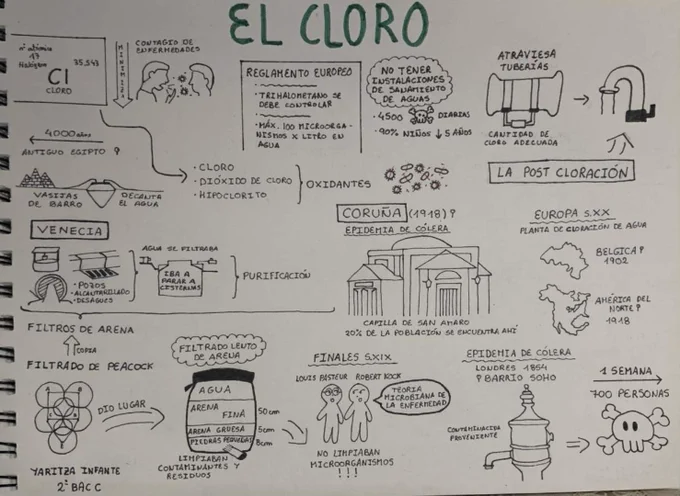 EL CLORO
nº atómico
17
Halógeno
35,543
Cl
CLORO
MINIMIZA
CONTAGIO DE
ENFERMEDADES
REGLAMENTO EUROPEO
· TRIHALOMETANO SE
DEBE CONTROLAR
· MÁX. 100 MICROORGA-
NISMOS X LITRO EN
AGUA
NO TENER
INSTALACIONES
DE SANAMIENTO
DE AGUAS
· 4500 DIARIAS
· 90% NIÑOS ↓ 5 AÑOS
ATRAVIESA
TUBERÍAS
CANTIDAD DE
CLORO ADECUADA
LA POST CLORACIÓN
4000 años
ANTIGUO EGIPTO
VASIJAS
DE BARRO
DECANTA
EL AGUA
· CLORO
· DIÓXIDO DE CLORO
· HIPOCLORITO
OXIDANTES
VENECIA
· POZOS
· ALCANTARILLADO
· DESAGUES
AGUA SE FILTRABA
IBA A
PARAR A
CISTERNAS
PURIFICACIÓN
CORUÑA (1918)
EPIDEMIA DE CÓLERA
CAPILLA DE SAN AMARO
20% DE LA POBLACIÓN SE ENCUENTRA AHÍ
EUROPA S.XX
PLANTA DE CLORACIÓN DE AGUA
BELGICA
1902
AMÉRICA DEL
NORTE
1918
FILTROS DE ARENA
COPIA
FILTRADO DE PEACOCK
DIO LUGAR
YARITZA INFANTE
2º BAC C
FILTRADO LENTO
DE ARENA
AGUA
ARENA
FINA
50cm
ARENA GRUESA
5cm
PIEDRAS PEQUEÑAS
8cm
LIMPIABAN
CONTAMINANTES Y
RESIDUOS
FINALES S.XIX
LOUIS PASTEUR ROBERT KOCK
TEORÍA
MICROBIANA DE
LA ENFERMEDAD
NO LIMPIABAN
MICROORGANISMOS
!!!
EPIDEMIA DE CÓLERA
LONDRES 1854
BARRIO SOHO
CONTAMINACIÓN
PROVENIENTE
1 SEMANA
700 PERSONAS